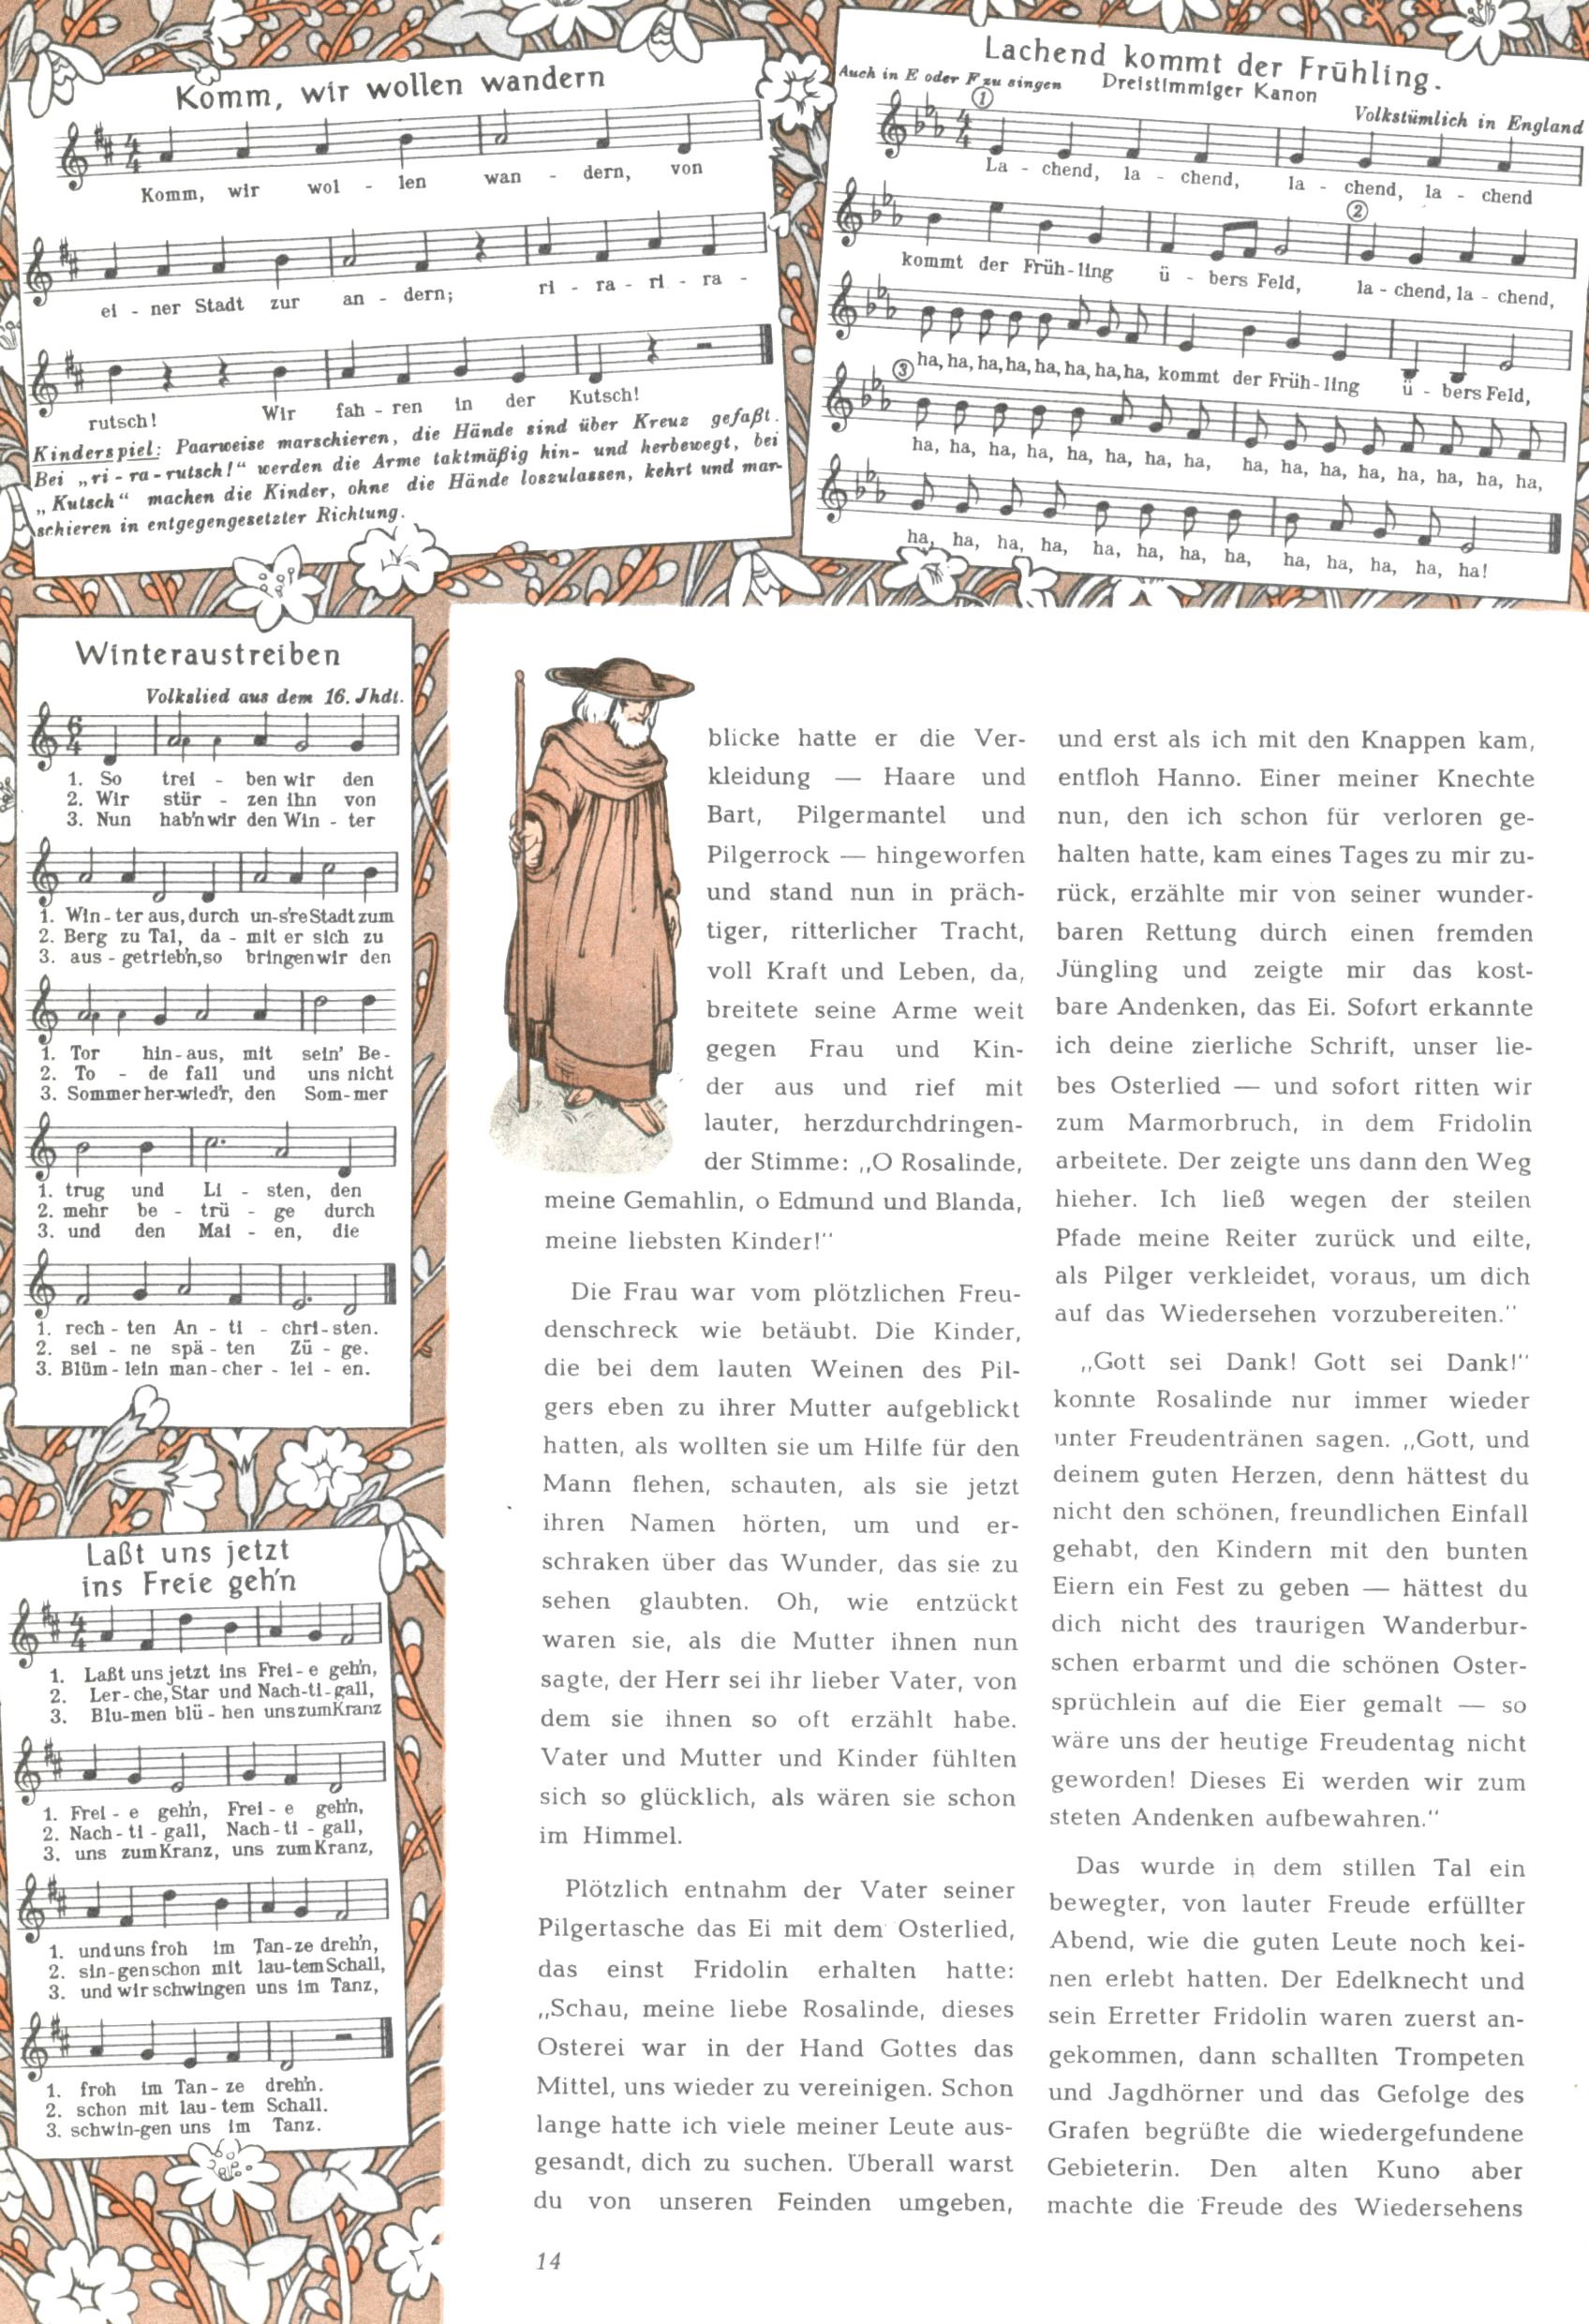 Komm, wir wollen wandern
Komm, wir wol - len wan - dern, von
ei - ner Stadt zur an - dern; ri - ra - ri - ra -
rutsch! Wir fah - ren in der Kutsch!
Kinderspiel: Paarweise marschieren, die Hände sind über Kreuz gefaßt.
Bei „ri - ra - rutsch!“ werden die Arme taktmäßig hin- und herbewegt, bei
„Kutsch“ machen die Kinder, ohne die Hände loszulassen, kehrt und mar-
schieren in entgegengesetzter Richtung.
Lachend kommt der Frühling.
Auch in E oder F zu singen Dreistimmiger Kanon
Volkstümlich in England
①
La - chend, la - chend, la - chend, la - chend
②
kommt der Früh-ling ü - bers Feld, la - chend, la - chend,
ha, ha, ha, ha, ha, ha, ha, ha, kommt der Früh-ling ü - bers Feld,
③
ha, ha, ha, ha, ha, ha, ha, ha, ha, ha, ha, ha, ha, ha, ha, ha,
ha, ha, ha, ha, ha, ha, ha, ha, ha, ha, ha, ha, ha!
Winteraustreiben
Volkslied aus dem 16. Jhdt.
1. So trei - ben wir den
2. Wir stür - zen ihn von
3. Nun hab'n wir den Win - ter
1. Win - ter aus, durch un-s're Stadt zum
2. Berg zu Tal, da - mit er sich zu
3. aus - getrieb'n, so bringen wir den
1. Tor hin - aus, mit sein' Be -
2. To - de fall' und uns nicht
3. Sommer her-wied'r, den Som-mer
1. trug und Li - sten, den
2. mehr be - trü - ge durch
3. und den Mai - en, die
1. rech - ten An - ti - chri-sten.
2. sei - ne spä - ten Zü - ge.
3. Blüm - lein man - cher - lei - en.
Laßt uns jetzt
ins Freie geh'n
1. Laßt uns jetzt ins Frei - e geh'n,
2. Ler - che, Star und Nach-ti-gall,
3. Blu-men blü - hen uns zum Kranz
1. Frei - e geh'n, Frei - e geh'n,
2. Nach - ti - gall, Nach - ti - gall,
3. uns zum Kranz, uns zum Kranz,
1. und uns froh im Tan-ze dreh'n,
2. sin-gen schon mit lau-tem Schall,
3. und wir schwingen uns im Tanz,
1. froh im Tan - ze dreh'n.
2. schon mit lau - tem Schall.
3. schwin-gen uns im Tanz.
blicke hatte er die Ver-
kleidung — Haare und
Bart, Pilgermantel und
Pilgerrock — hingeworfen
und stand nun in präch-
tiger, ritterlicher Tracht,
voll Kraft und Leben, da,
breitete seine Arme weit
gegen Frau und Kin-
der aus und rief mit
lauter, herzdurchdringen-
der Stimme: „O Rosalinde,
meine Gemahlin, o Edmund und Blanda,
meine liebsten Kinder!“
Die Frau war vom plötzlichen Freu-
denschreck wie betäubt. Die Kinder,
die bei dem lauten Weinen des Pil-
gers eben zu ihrer Mutter aufgeblickt
hatten, als wollten sie um Hilfe für den
Mann flehen, schauten, als sie jetzt
ihren Namen hörten, um und er-
schraken über das Wunder, das sie zu
sehen glaubten. Oh, wie entzückt
waren sie, als die Mutter ihnen nun
sagte, der Herr sei ihr lieber Vater, von
dem sie ihnen so oft erzählt habe.
Vater und Mutter und Kinder fühlten
sich so glücklich, als wären sie schon
im Himmel.
Plötzlich entnahm der Vater seiner
Pilgertasche das Ei mit dem Osterlied,
das einst Fridolin erhalten hatte:
„Schau, meine liebe Rosalinde, dieses
Osterei war in der Hand Gottes das
Mittel, uns wieder zu vereinigen. Schon
lange hatte ich viele meiner Leute aus-
gesandt, dich zu suchen. Überall warst
du von unseren Feinden umgeben,
und erst als ich mit den Knappen kam,
entfloh Hanno. Einer meiner Knechte
nun, den ich schon für verloren ge-
halten hatte, kam eines Tages zu mir zu-
rück, erzählte mir von seiner wunder-
baren Rettung durch einen fremden
Jüngling und zeigte mir das kost-
bare Andenken, das Ei. Sofort erkannte
ich deine zierliche Schrift, unser lie-
bes Osterlied — und sofort ritten wir
zum Marmorbruch, in dem Fridolin
arbeitete. Der zeigte uns dann den Weg
hieher. Ich ließ wegen der steilen
Pfade meine Reiter zurück und eilte,
als Pilger verkleidet, voraus, um dich
auf das Wiedersehen vorzubereiten.“
„Gott sei Dank! Gott sei Dank!“
konnte Rosalinde nur immer wieder
unter Freudentränen sagen. „Gott, und
deinem guten Herzen, denn hättest du
nicht den schönen, freundlichen Einfall
gehabt, den Kindern mit den bunten
Eiern ein Fest zu geben — hättest du
dich nicht des traurigen Wanderbur-
schen erbarmt und die schönen Oster-
sprüchlein auf die Eier gemalt — so
wäre uns der heutige Freudentag nicht
geworden! Dieses Ei werden wir zum
steten Andenken aufbewahren.“
Das wurde in dem stillen Tal ein
bewegter, von lauter Freude erfüllter
Abend, wie die guten Leute noch kei-
nen erlebt hatten. Der Edelknecht und
sein Erretter Fridolin waren zuerst an-
gekommen, dann schallten Trompeten
und Jagdhörner und das Gefolge des
Grafen begrüßte die wiedergefundene
Gebieterin. Den alten Kuno aber
machte die Freude des Wiedersehens
14